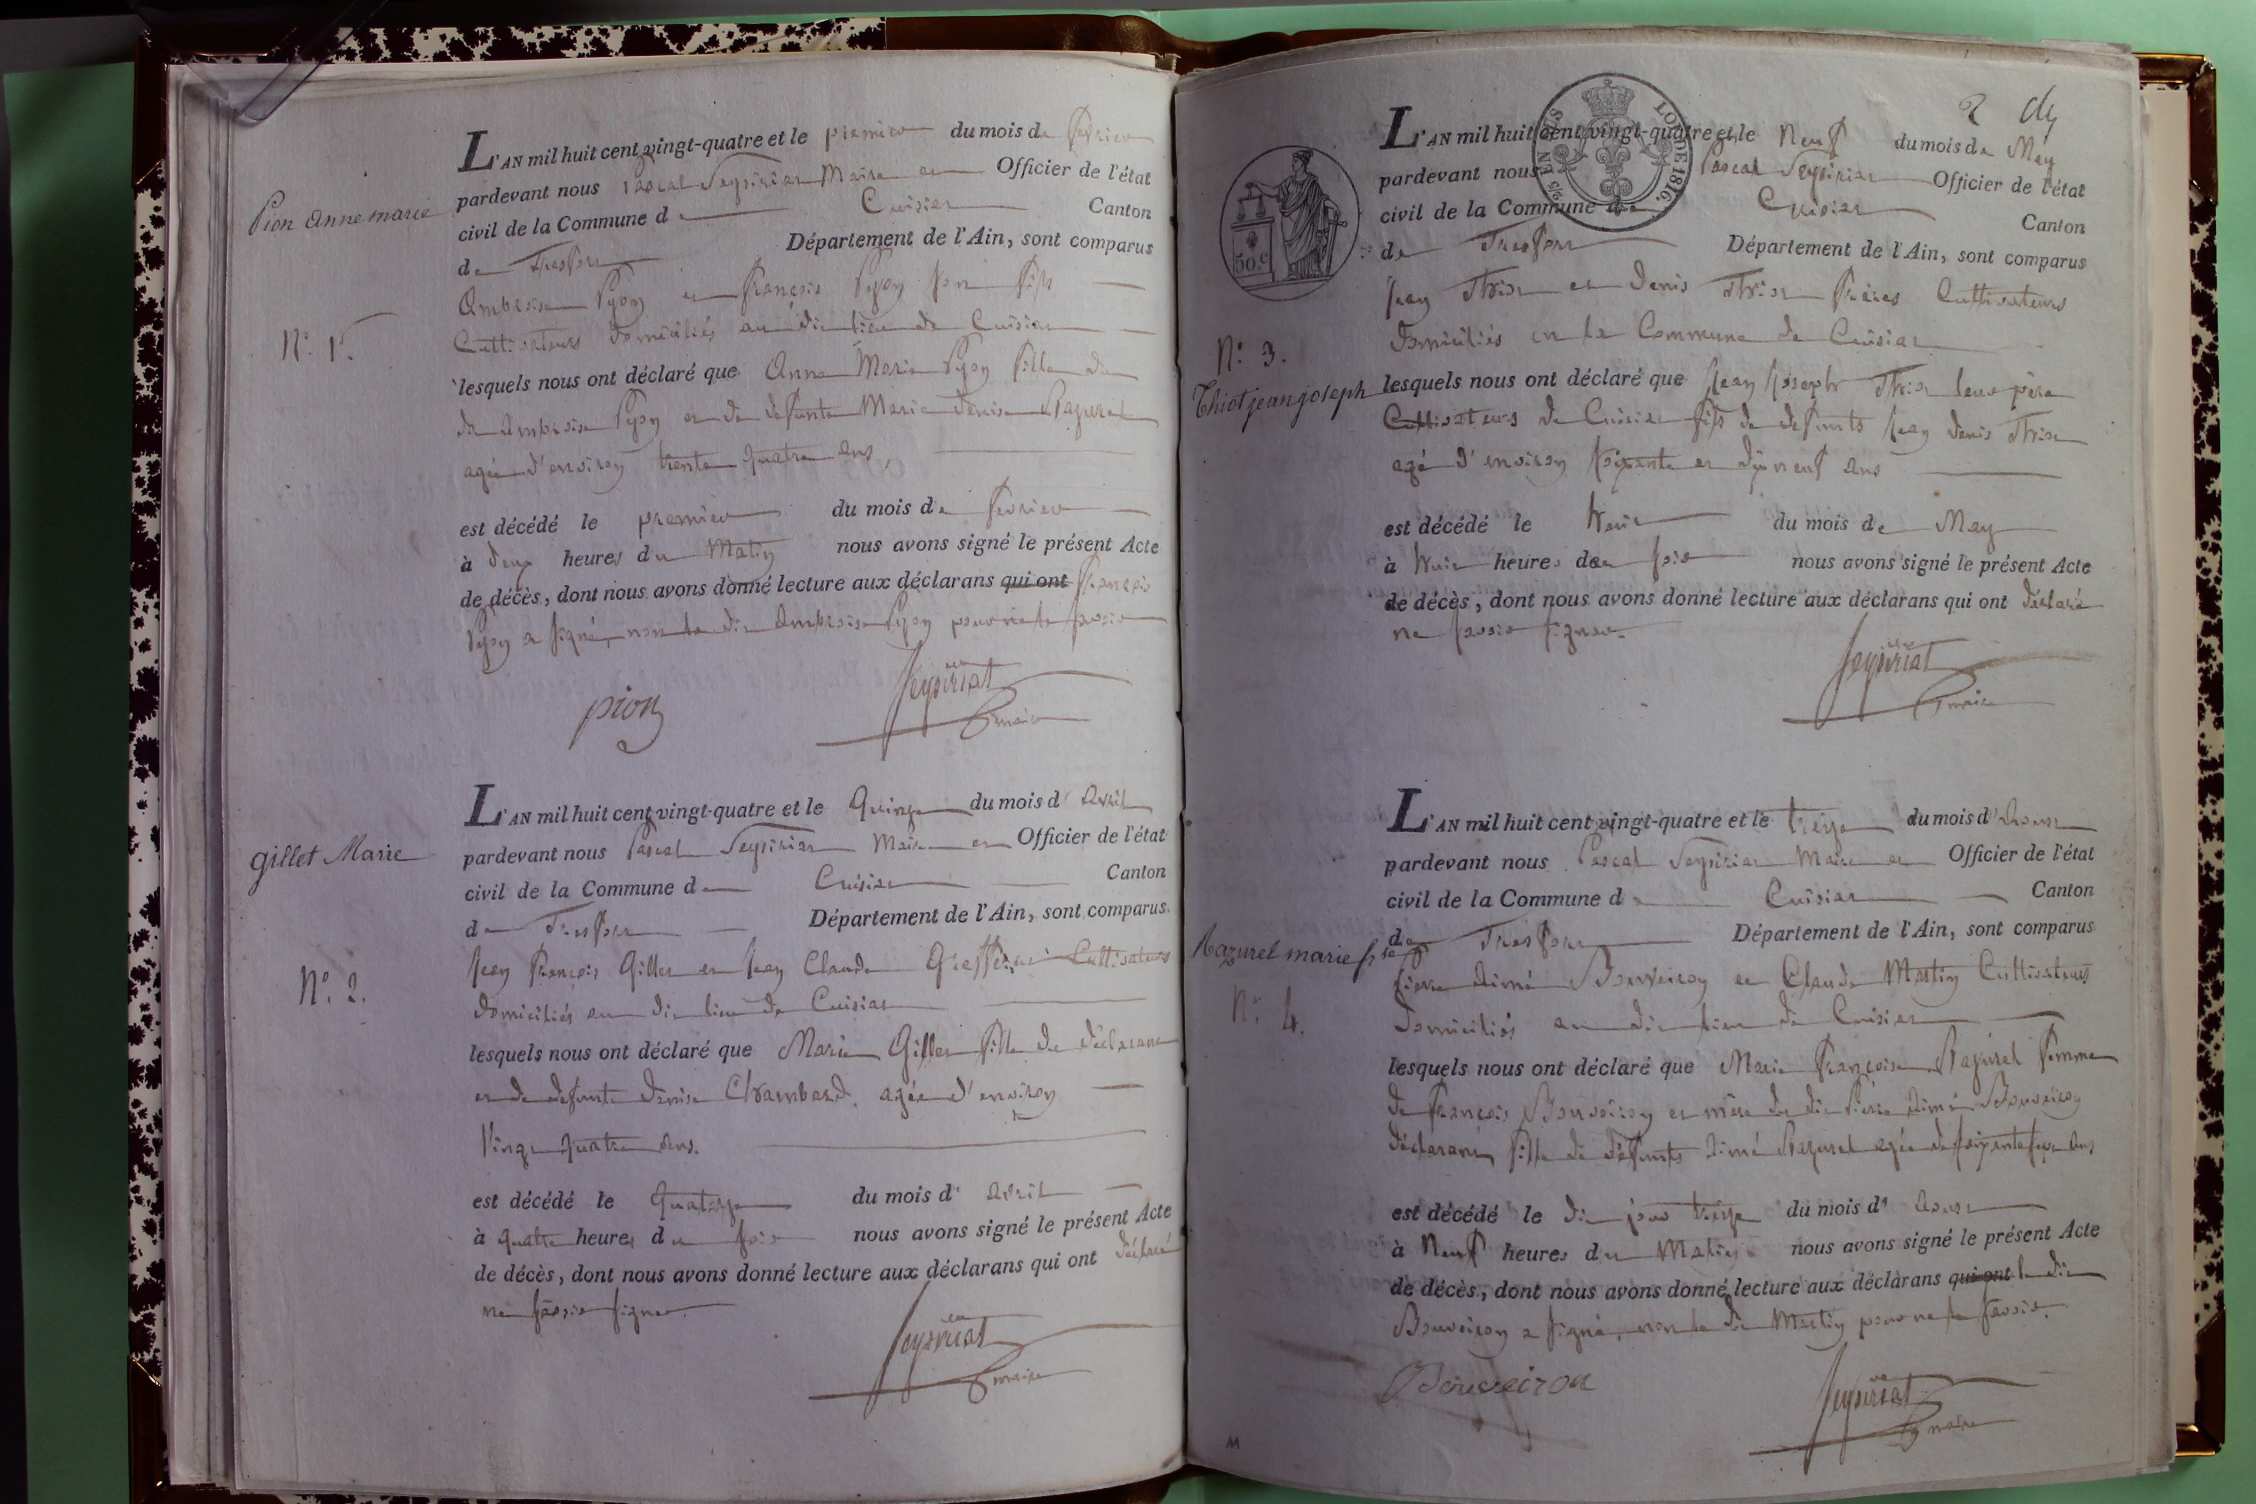 Pion anne marie
N.º 1.er
L'AN mil huit cent vingt-quatre et le premier du mois de fevrier
pardevant nous Pascal Seysiriat Maire et Officier de l'état
civil de la Commune de Cuisiat Canton
de Treffort Département de l'Ain, sont comparus
Ambroise Pyon et françois Pyon son fils
Cultivateurs domiciliés au dit lieu de Cuisiat
lesquels nous ont déclaré que Anne Marie Pyon fille du
dit Ambroise Pyon et de defunte Marie denise Razurel
agée d'environ trente quatre ans,
est décédé le premier du mois de fevrier
à deux heures du Matin nous avons signé le présent Acte
de décès, dont nous avons donné lecture aux déclarans qui ont françois
Pyon a signé, non le dit Ambroise Pyon pour ne le savoir
pion Seysiriat
maire
gillet Marie
N.º 2.
L'AN mil huit cent vingt-quatre et le Quinze du mois d'avril
pardevant nous Pascal Seysiriat Maire et Officier de l'état
civil de la Commune de Cuisiat Canton
de Treffort Département de l'Ain, sont comparus
Jean françois Gillet et Jean Claude Cultivateurs
domiciliés au dit lieu de Cuisiat
lesquels nous ont déclaré que Marie Gillet fille du déclarant
et de defunte denise Chambard. agée d'environ
Vingt quatre ans.
est décédé le Quatorze du mois d'avril
à quatre heures du soir nous avons signé le présent Acte
de décès, dont nous avons donné lecture aux déclarans qui ont déclaré
ne savoir signer.
Seysiriat
maire
2
SEN
LOI DE 1816.
50.c
N.º 3.
Thiot jean joseph
L'AN mil huit cent vingt-quatre et le Neuf du mois de May
pardevant nous Pascal Seysiriat Officier de l'état
civil de la Commune de Cuisiat Canton
de Treffort Département de l'Ain, sont comparus
Jean Thiot et Denis Thiot frères Cultivateurs
domiciliés en la Commune de Cuisiat
lesquels nous ont déclaré que Jean Joseph Thiot leur père
Cultivateurs de Cuisiat fils de defunts Jean denis Thiot
agé d'environ soixante et dix neuf ans
est décédé le huit du mois de May
à huit heures de soir nous avons signé le présent Acte
de décès, dont nous avons donné lecture aux déclarans qui ont déclaré
ne savoir signer.
Seysiriat
maire
Razurel marie f.se
N.º 4.
L'AN mil huit cent vingt-quatre et le treize du mois d'Aoust
pardevant nous Pascal Seysiriat Maire et Officier de l'état
civil de la Commune de Cuisiat Canton
de Treffort Département de l'Ain, sont comparus
Pierre Aimé Bouveiron et Claude Martin Cultivateurs
domiciliés au dit lieu de Cuisiat
lesquels nous ont déclaré que Marie françoise Razurel femme
de françois Bouveiron et mère du dit Pierre Aimé Bouveiron
déclarant, fille de défunts Aimé Razurel agée de soixante ans
est décédé le dit jour treize du mois d'Aoust
à Neuf heures du Matin nous avons signé le présent Acte
de décès, dont nous avons donné lecture aux déclarans qui ont le dit
Bouveiron a signé, non le dit Martin pour ne le savoir.
Bouveiron Seysiriat
maire